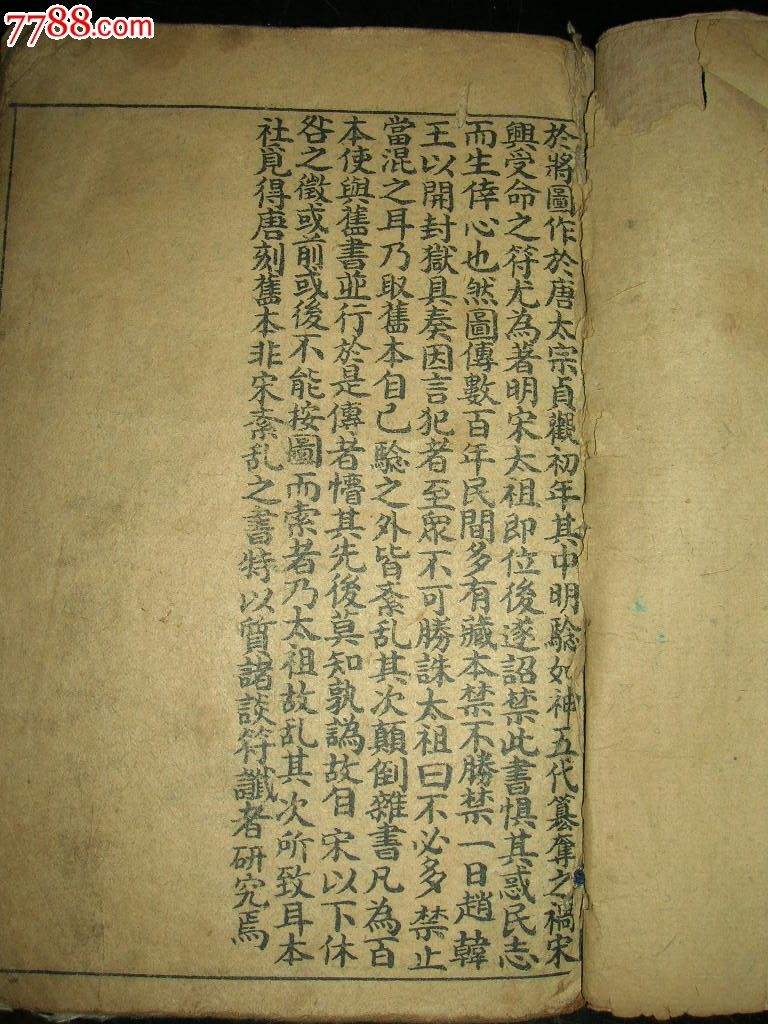 7788.com
於將圖作於唐太宗貞觀初年其中明驗如神五代簒奪之禍宋
興受命之符尤為著明宋太祖即位後遂詔禁此書惧其惑民志
而生倖心也然圖傳數百年民間多有藏本禁不勝禁一日趙韓
王以開封獄具奏因言犯者至眾不可勝誅太祖曰不必多禁止
當混之耳乃取舊本自己驗之外皆紊乱其次顛倒雜書凡為百
本使與舊書並行於是傳者懵其先後莫知孰譌故自宋以下休
咎之徵或前或後不能按圖而索者乃太祖故乱其次所致耳本
社覓得唐刻舊本非宋紊乱之書特以質諸談符讖者研究焉